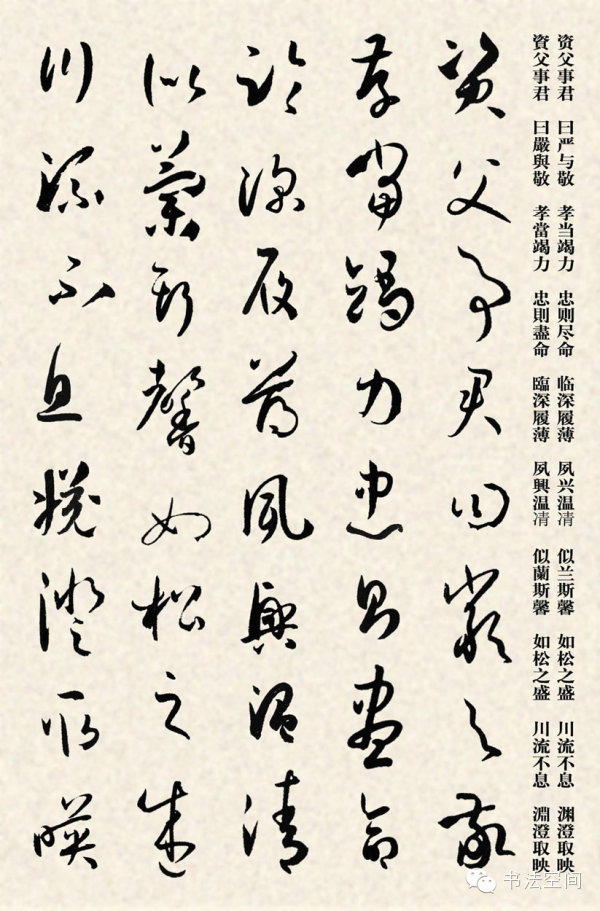 资父事君 曰严与敬 孝当竭力 忠则尽命 临深履薄 夙兴温凊 似兰斯馨 如松之盛 川流不息 渊澄取映
資父事君 曰嚴與敬 孝當竭力 忠則盡命 臨深履薄 夙興温凊 似蘭斯馨 如松之盛 川流不息 淵澄取映
資父事君曰嚴與敬
孝當竭力忠則盡命
臨深履薄夙興温清
似蘭斯馨如松之盛
川流不息淵澄取映
书法空间